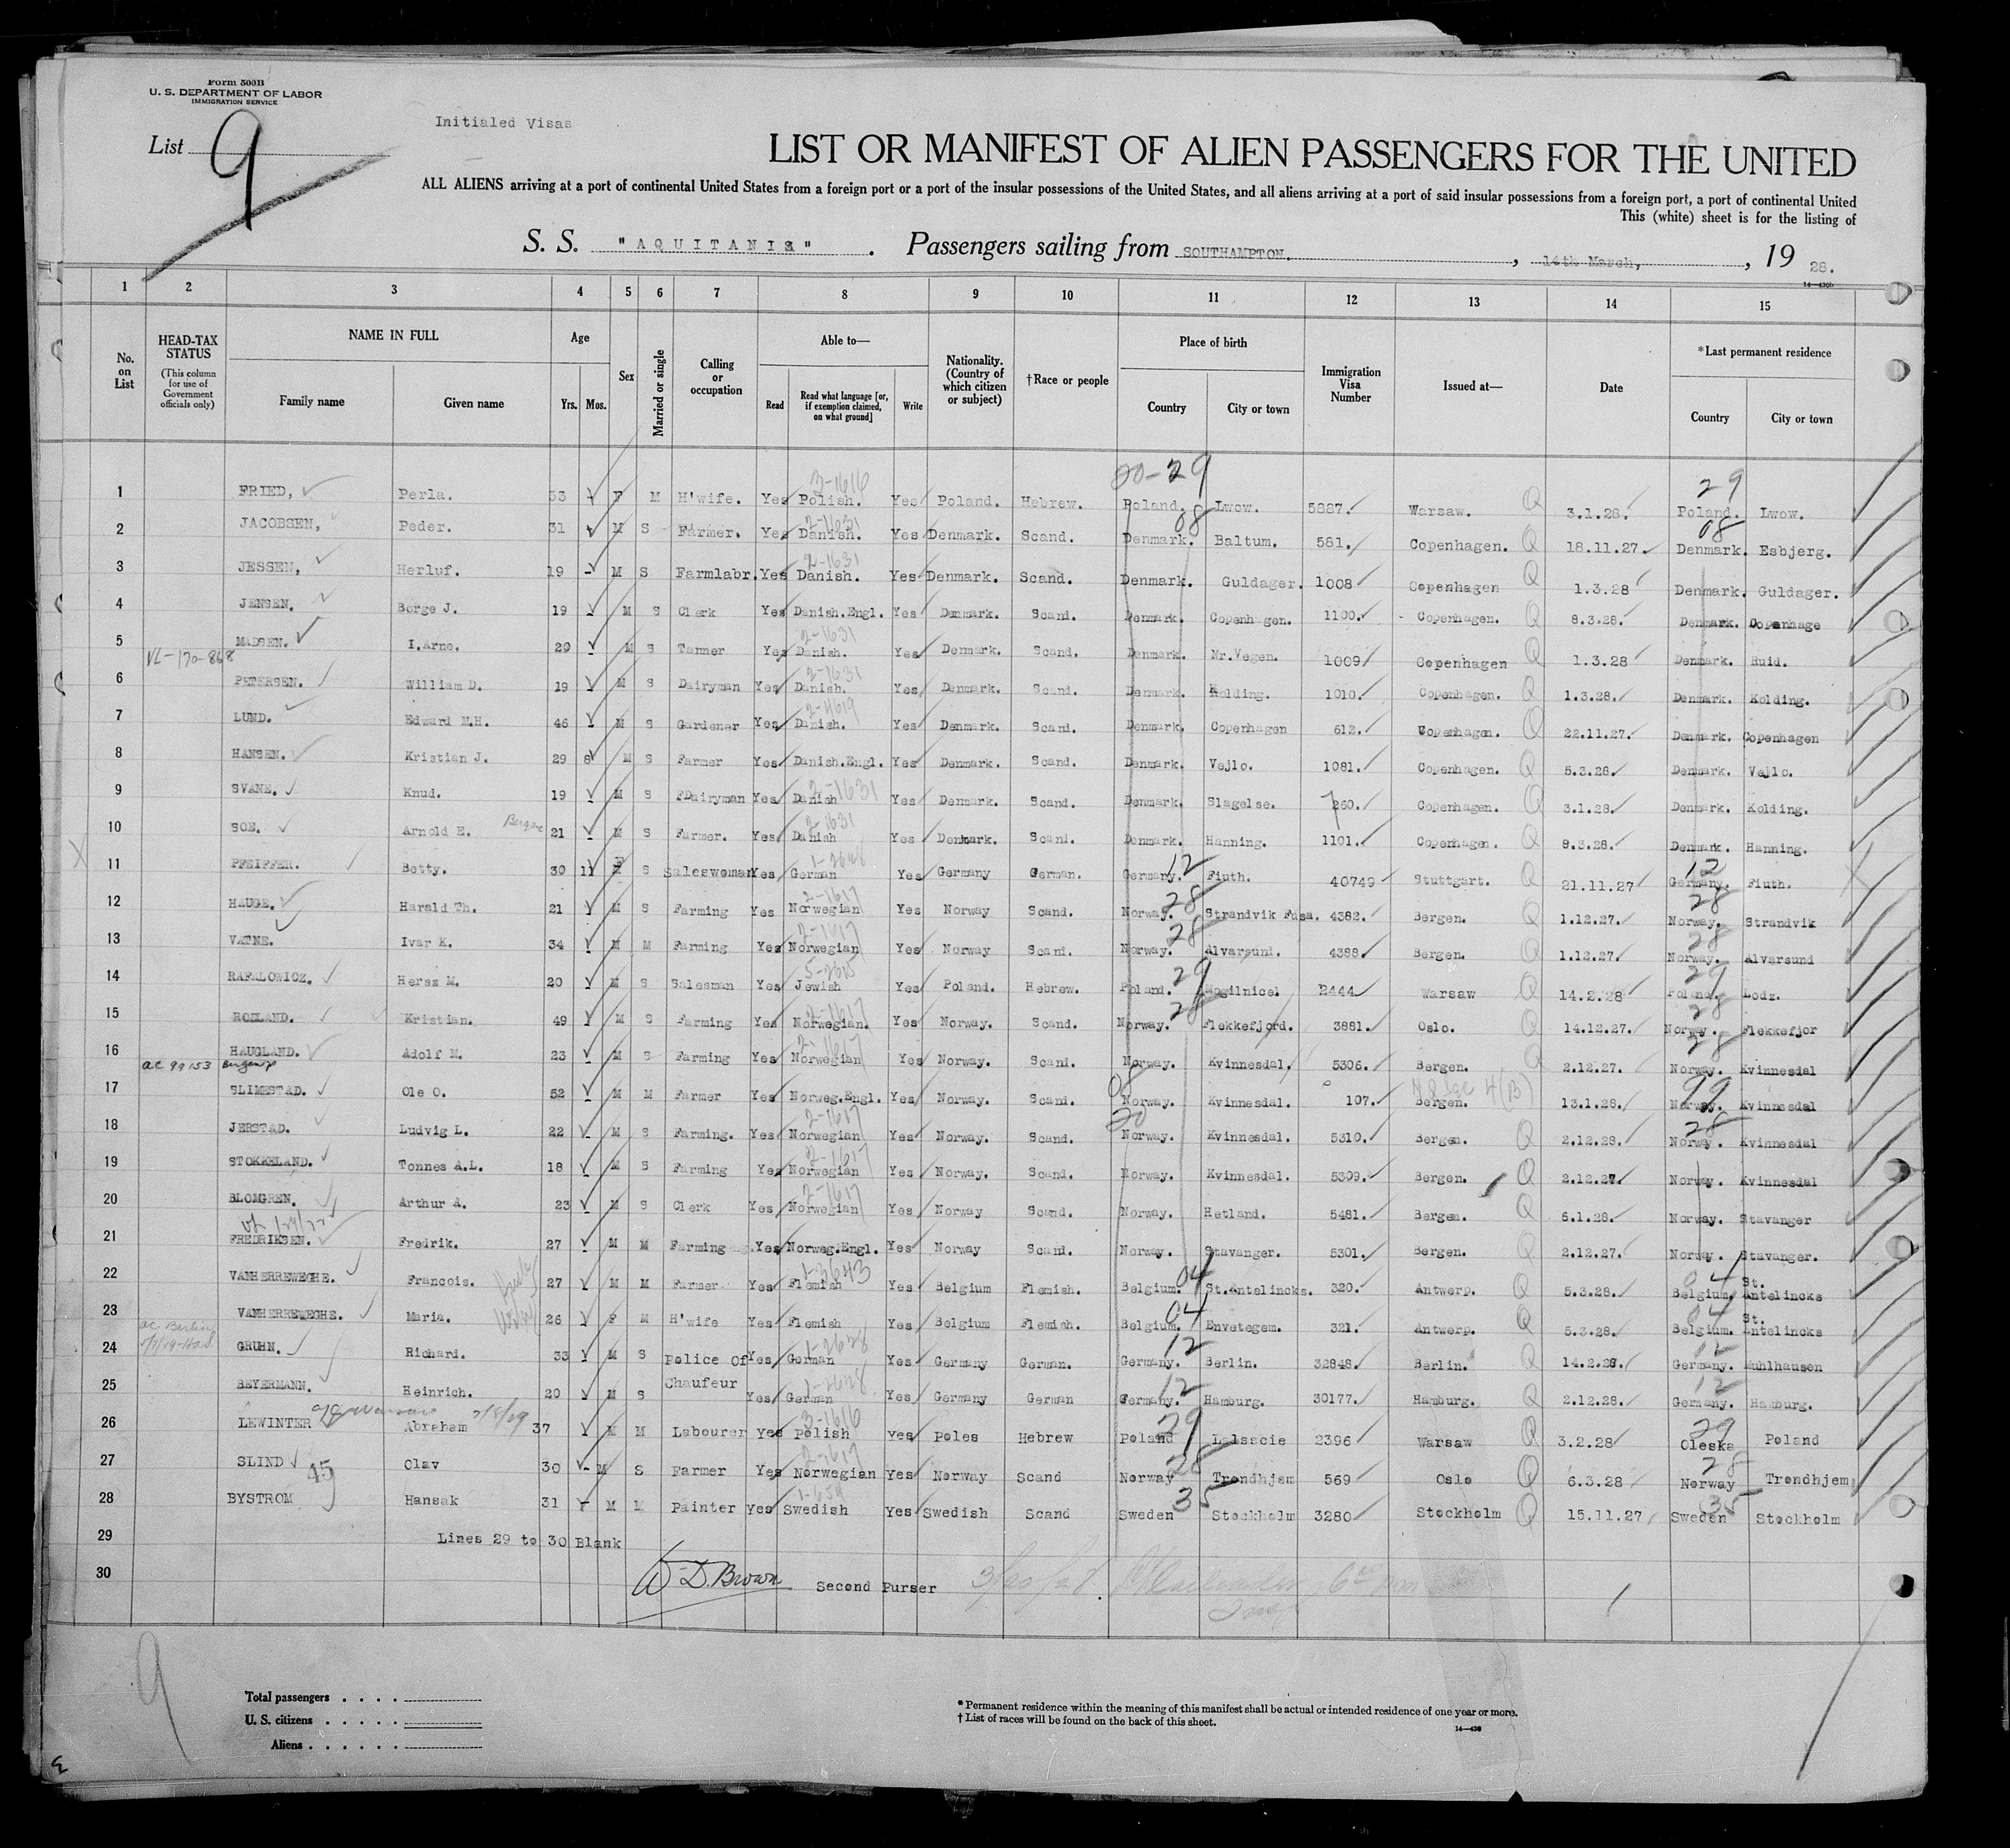 Form 500B
U. S. DEPARTMENT OF LABOR
IMMIGRATION SERVICE
Initialed Visas
List 9
LIST OR MANIFEST OF ALIEN PASSENGERS FOR THE UNITED
ALL ALIENS arriving at a port of continental United States from a foreign port or a port of the insular possessions of the United States, and all aliens arriving at a port of said insular possessions from a foreign port, a port of continental United
This (white) sheet is for the listing of
S. S. "AQUITANIA". Passengers sailing from SOUTHAMPTON. , 14th March, , 19 28.
14—430b
1 2 3 4 5 6 7 8 9 10 11 12 13 14 15
No. on List
HEAD-TAX STATUS (This column for use of Government officials only)
NAME IN FULL Family name Given name
Age Yrs. Mos.
Sex
Married or single
Calling or occupation
Able to— Read Read what language [or, if exemption claimed, on what ground] Write
Nationality. (Country of which citizen or subject)
†Race or people
Place of birth Country City or town
Immigration Visa Number
Issued at—
Date
*Last permanent residence Country City or town
20-29 3-1616 29
1 FRIED, Perla. 53 F M H'wife. Yes Polish. Yes Poland. Hebrew. Poland. Lwow. 5887. Warsaw. Q 3.1.28. Poland. Lwow.
2-1631 08 08
2 JACOBSEN, Peder. 31 M S Farmer. Yes Danish. Yes Denmark. Scand. Denmark. Baltum. 581. Copenhagen. Q 18.11.27. Denmark. Esbjerg.
2-1631
3 JESSEN, Herluf. 19 - M S Farmlabr. Yes Danish. Yes Denmark. Scand. Denmark. Guldager. 1008 Copenhagen Q 1.3.28 Denmark. Guldager.
4 JENSEN. Borge J. 19 M S Clerk Yes Danish.Engl. Yes Denmark. Scand. Denmark. Copenhagen. 1100. Copenhagen. Q 8.3.28. Denmark. Copenhage
2-1631
5 MADSEN. I.Arne. 29 M S Tanner Yes Danish. Yes Denmark. Scand. Denmark. Nr.Vegen. 1009 Copenhagen Q 1.3.28 Denmark. Ruid.
VL-170-868 2-1631
6 PETERSEN. William D. 19 M S Dairyman Yes Danish. Yes Denmark. Scand. Denmark. Kolding. 1010. Copenhagen. Q 1.3.28. Denmark. Kolding.
2-4619
7 LUND. Edward M.H. 46 M S Gardener Yes Danish. Yes Denmark. Scand. Denmark. Copenhagen 612. Copenhagen. Q 22.11.27. Denmark. Copenhagen
8 HANSEN. Kristian J. 29 8 M S Farmer Yes Danish.Engl. Yes Denmark. Scand. Denmark. Vejlo. 1081. Copenhagen. Q 5.3.28. Denmark. Vejlo.
2-1631
9 SVANE. Knud. 19 M S Dairyman Yes Danish Yes Denmark. Scand. Denmark. Slagelse. 260. Copenhagen. Q 3.1.28. Denmark. Kolding.
2-1631
10 SOE. Arnold E. 21 M S Farmer. Yes Danish Yes Denmark. Scand. Denmark. Hanning. 1101. Copenhagen. Q 8.3.28. Denmark. Hanning.
1-2628 12 12
11 PFEIFFER. Betty. 30 11 F S Saleswoman Yes German Yes Germany German. Germany. Fiuth. 40749 Stuttgart. Q 21.11.27 Germany. Fiuth.
2-1617 28 28
12 HAUGE. Harald Th. 21 M S Farming Yes Norwegian Yes Norway Scand. Norway. Strandvik Fusa. 4382. Bergen. Q 1.12.27. Norway. Strandvik
2-1617 28 28
13 VATNE. Ivar K. 34 M M Farming Yes Norwegian Yes Norway Scand. Norway. Alvarsund. 4388. Bergen. Q 1.12.27. Norway. Alvarsund
5-2615 29 29
14 RAFALOWICZ. Hersz M. 20 M S Salesman Yes Jewish Yes Poland. Hebrew. Poland. Mogilnice. 2444 Warsaw Q 14.2.28 Poland. Lodz.
2-1617 28 28
15 RODLAND. Kristian. 49 M S Farming Yes Norwegian. Yes Norway. Scand. Norway. Flekkefjord. 3881. Oslo. Q 14.12.27. Norway. Flekkefjor
2-1617 28
16 HAUGLAND. Adolf M. 23 M S Farming Yes Norwegian Yes Norway. Scand. Norway. Kvinnesdal. 5306. Bergen. Q 2.12.27. Norway. Kvinnesdal
ac 99153 Bergen
17 SLIMESTAD. Ole O. 52 M M Farmer Yes Norweg.Engl. Yes Norway. Scand. Norway. Kvinnesdal. 107. Bergen. 4(B) 13.1.28. Norway. Kvinnesdal
2-1617 20 28
18 JERSTAD. Ludvig L. 22 M S Farming. Yes Norwegian Yes Norway. Scand. Norway. Kvinnesdal. 5310. Bergen. Q 2.12.28. Norway. Kvinnesdal
2-1617
19 STOKKELAND. Tonnes A.L. 18 M S Farming Yes Norwegian Yes Norway. Scand. Norway. Kvinnesdal. 5309. Bergen. Q 2.12.27. Norway. Kvinnesdal
2-1617
20 BLOMGREN. Arthur A. 23 M S Clerk Yes Norwegian Yes Norway Scand. Norway. Hetland. 5481. Bergen. Q 6.1.28. Norway. Stavanger
21 FREDRIKSEN. Fredrik. 27 M M Farming Yes Norweg.Engl. Yes Norway Scand. Norway. Stavanger. 5301. Bergen. Q 2.12.27. Norway. Stavanger.
1-3643 04 04
22 VANHERREWEGHE. Francois. 27 M M Farmer Yes Flemish Yes Belgium Flemish. Belgium. St.Antelincks. 320. Antwerp. Q 5.3.28. Belgium. St. Antelincks
04 04
23 VANHERREWEGHE. Maria. 26 F M H'wife Yes Flemish Yes Belgium Flemish. Belgium. Envetegem. 321. Antwerp. Q 5.3.28. Belgium. St. Antelincks
ac Berlin 1-2628 12 12
24 GRUHN. Richard. 33 M S Police Of Yes German Yes Germany German. Germany. Berlin. 32848. Berlin. Q 14.2.28. Germany. Muhlhausen
1-2628 12 12
25 BEYERMANN. Heinrich. 20 M S Chaufeur Yes German Yes Germany German Germany. Hamburg. 30177. Hamburg. Q 2.12.28. Germany. Hamburg.
3-1616 29 29
26 LEWINTER Abraham 37 M M Labourer Yes Polish yes Poles Hebrew Poland Lalsacie 2396 Warsaw Q 3.2.28 Oleska Poland
2-1617 28 28
27 SLIND Olav 30 - M S Farmer Yes Norwegian Yes Norway Scand Norway Trondhjem 569 Oslo Q 6.3.28 Norway Trondhjem
45 1-654 35 35
28 BYSTROM Hansak 31 M M Painter Yes Swedish Yes Swedish Scand Sweden Stockholm 3280 Stockholm Q 15.11.27 Sweden Stockholm
29 Lines 29 to 30 Blank
30 W D Brown Second Purser 3/20/28
9
Total passengers . . . .
U. S. citizens . . . . .
Aliens . . . . . .
* Permanent residence within the meaning of this manifest shall be actual or intended residence of one year or more.
† List of races will be found on the back of this sheet.
14—430